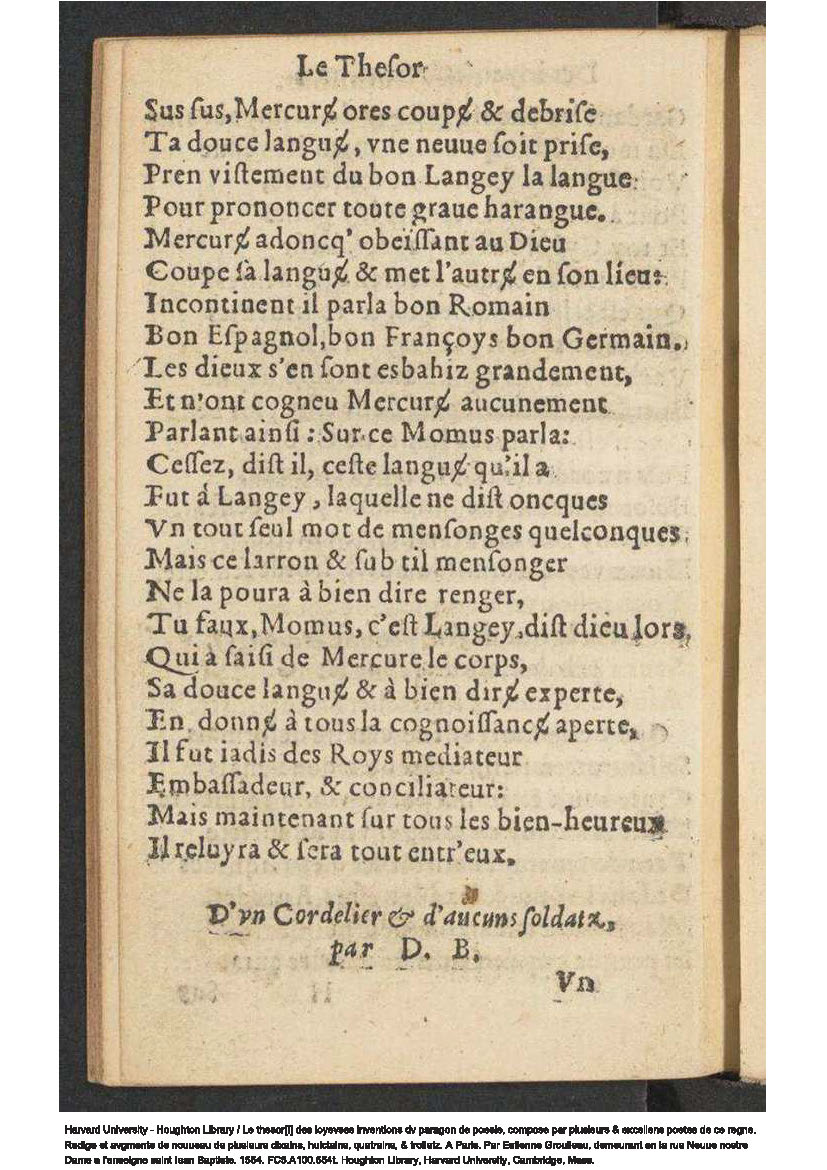 Le Theſor
Sus ſus, Mercurɇ ores coupɇ & debriſe
Ta douce languɇ, vne neuue ſoit priſe,
Pren viſtement du bon Langey la langue
Pour prononcer toute graue harangue.
Mercurɇ adoncq' obeïſſant au Dieu
Coupe ſà languɇ & met l'autrɇ en ſon lieu:
Incontinent il parla bon Romain
Bon Eſpagnol, bon Françoys bon Germain.
Les dieux s'en ſont esbahiz grandement,
Et n'ont cogneu Mercurɇ aucunement
Parlant ainſi : Sur ce Momus parla:
Ceſſez, diſt il, ceſte languɇ qu'il a
Fut á Langey, laquelle ne diſt oncques
Vn tout ſeul mot de menſonges quelconques.
Mais ce larron & ſub til menſonger
Ne la poura à bien dire renger,
Tu faux, Momus, c'eſt Langey, diſt dieu lors,
Qui à ſaiſi de Mercure le corps,
Sa douce languɇ & à bien dirɇ experte,
En donnɇ à tous la cognoiſſancɇ aperte,
Il fut iadis des Roys mediateur
Embaſſadeur, & conciliateur:
Mais maintenant ſur tous les bien-heureux
Il reluyra & ſera tout entr'eux.
D'vn Cordelier & d'aucuns ſoldatz,
par D. B.
Vn
Harvard University - Houghton Library / Le thesor[i] des ioyevses inventions dv paragon de poesie, compose par plusieurs & excellens poetes de ce regne.
Redige et avgmente de nouueau de plusieurs dixains, huictains, quatrains, & trolletz. A Paris. Par Estienne Groulleau, demeurant en la rue Neuue nostre
Dame a l'enseigne saint Iean Baptiste. 1554. FC5.A100.554t. Houghton Library, Harvard University, Cambridge, Mass.